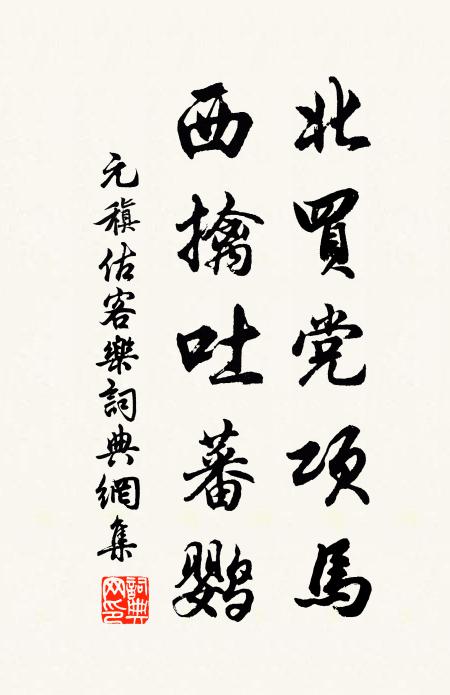 北買党项馬
西擒吐蕃鹦
元稹估客樂詞典網集
詞典網印